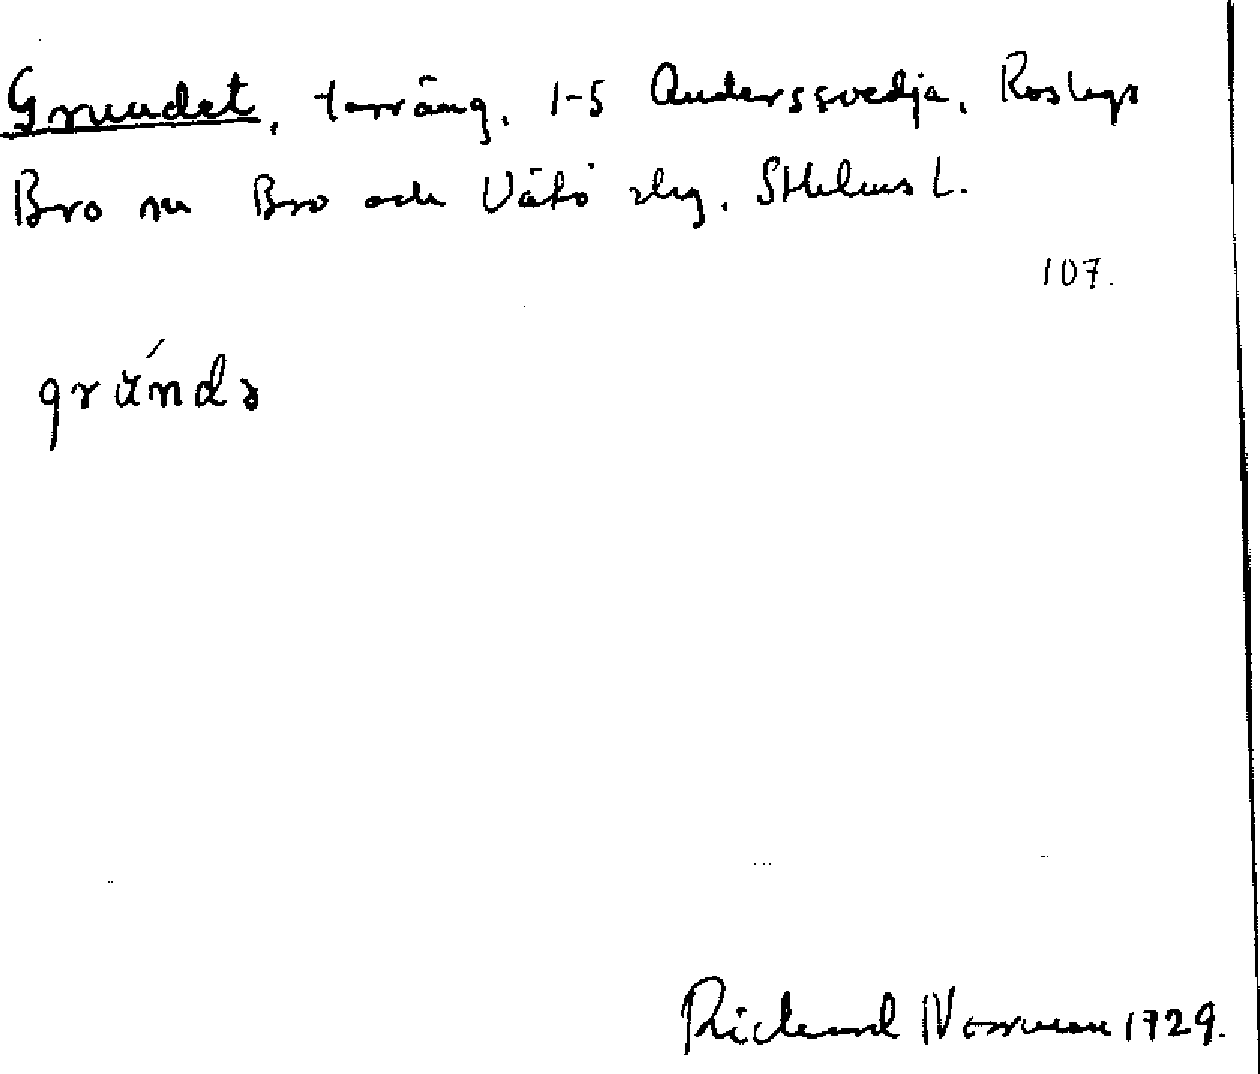 Grundet, torräng, 1-5 Anderssvedja, Roslags
Bro sn Bro och Vätö slg, Sthlms L.
107.
grúndə
Rickard Norman 1929.